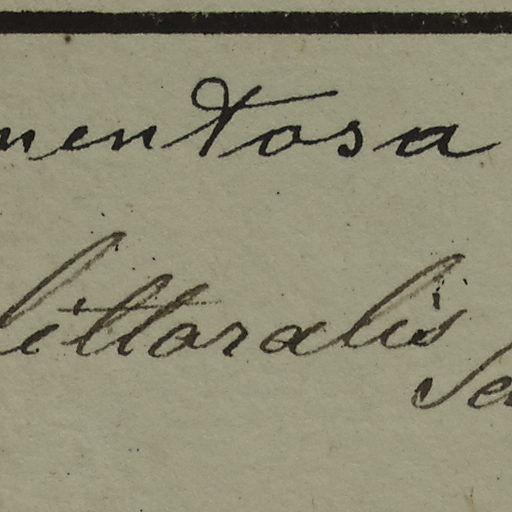 mentosa
littoralis